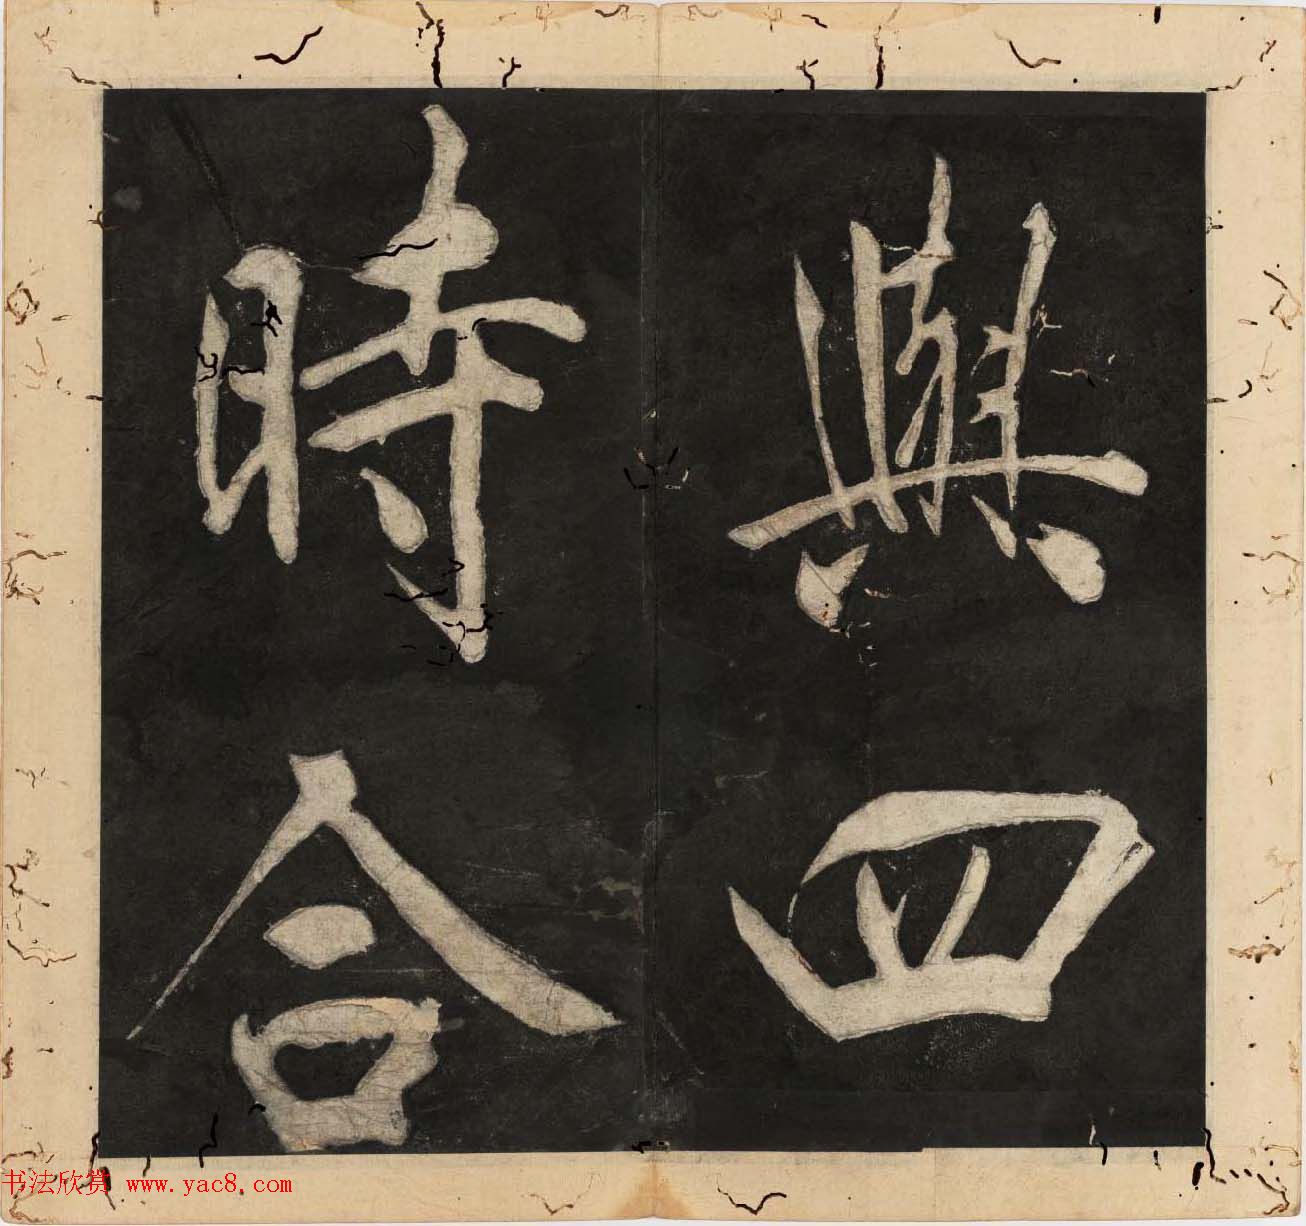 與四
時合
书法欣赏 www.yac8.com